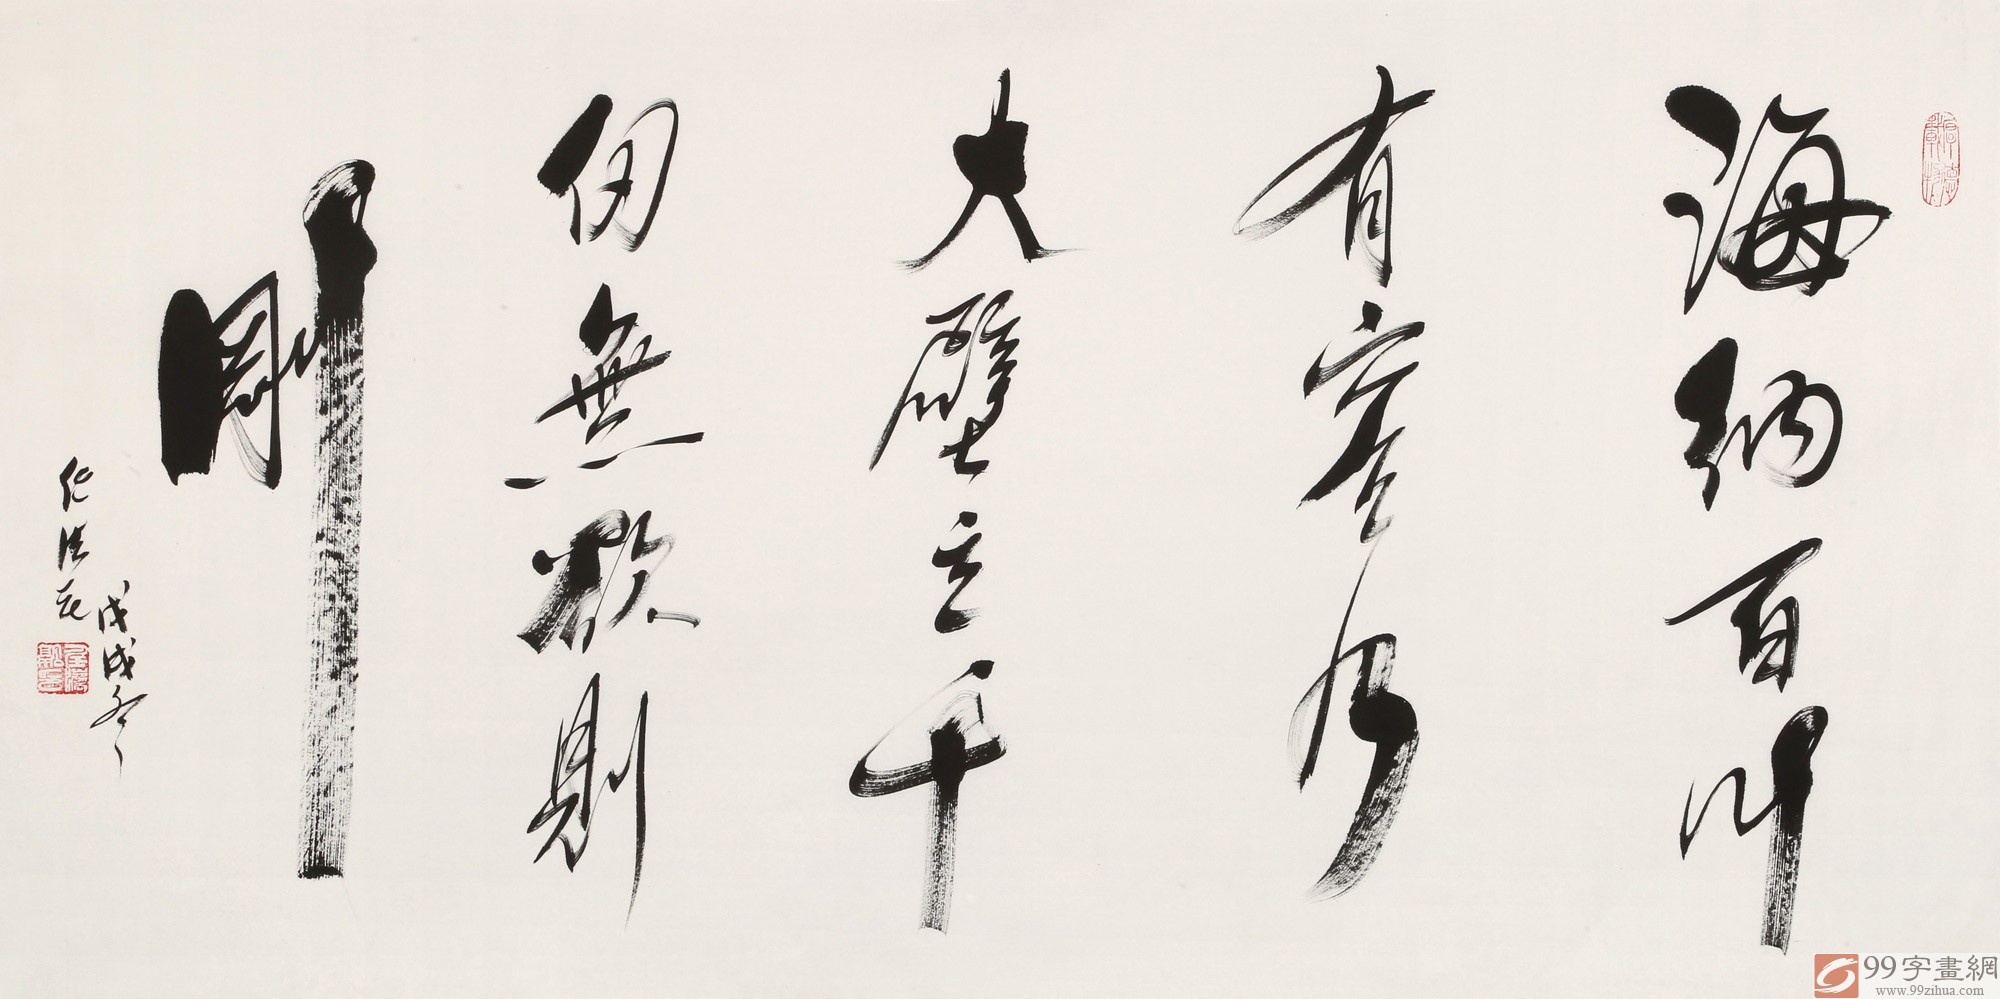 海納百川
有容乃
大壁立千
仞無欲則
剛
戊戌冬
99字畫網
www.99zihua.com